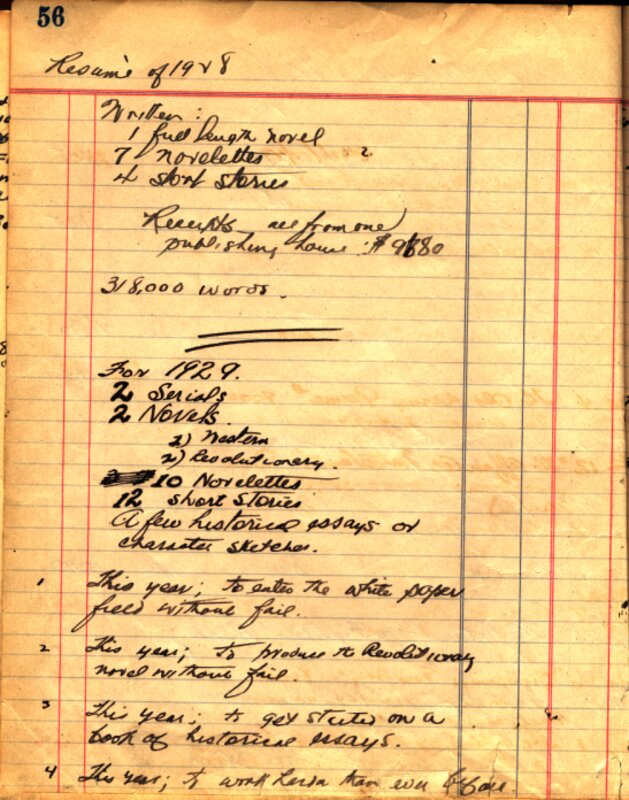 56
Resumé of 1928
Written:
1 full length novel
7 novelettes
4 short stories
Receipts all from one
publishing house: $9680
318,000 words.
For 1929.
2 Serials
2 Novels.
1) Western
2) Revolutionary.
10 Novelettes
12 short stories
A few historical essays or
character sketches.
1 This year; to enter the white paper
field without fail.
2 This year; to produce the Revolutionary
novel without fail.
3 This year; to get started on a
book of historical essays.
4 This year; to work harder than ever before.